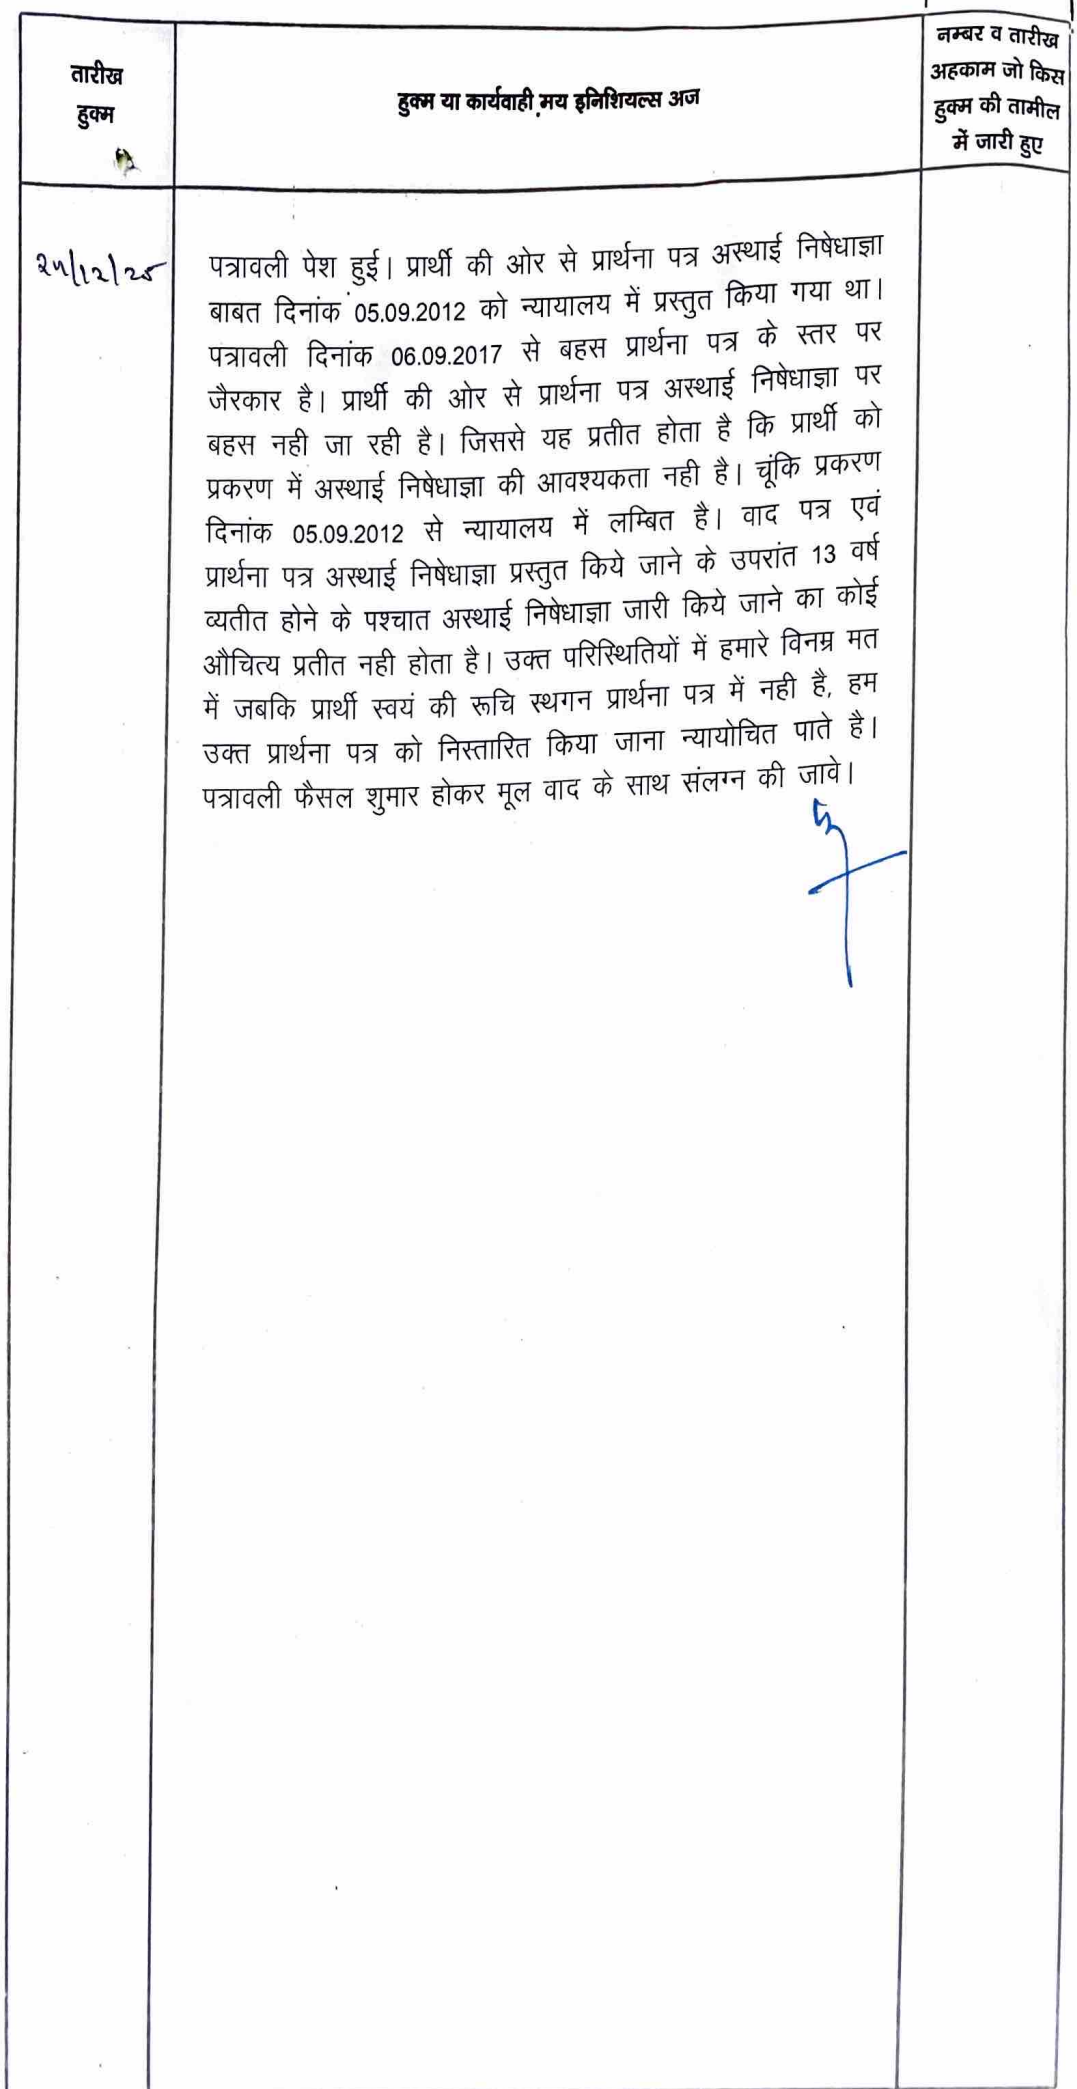 तारीख
हुक्म
हुक्म या कार्यवाही मय इनिशियल्स अज
नम्बर व तारीख
अहकाम जो किस
हुक्म की तामील
में जारी हुए
पत्रावली पेश हुई। प्रार्थी की ओर से प्रार्थना पत्र अस्थाई निषेधाज्ञा
बाबत दिनांक 05.09.2012 को न्यायालय में प्रस्तुत किया गया था।
पत्रावली दिनांक 06.09.2017 से बहस प्रार्थना पत्र के स्तर पर
जैरकार है। प्रार्थी की ओर से प्रार्थना पत्र अस्थाई निषेधाज्ञा पर
बहस नही जा रही है। जिससे यह प्रतीत होता है कि प्रार्थी को
प्रकरण में अस्थाई निषेधाज्ञा की आवश्यकता नही है। चूंकि प्रकरण
दिनांक 05.09.2012 से न्यायालय में लम्बित है। वाद पत्र एवं
प्रार्थना पत्र अस्थाई निषेधाज्ञा प्रस्तुत किये जाने के उपरांत 13 वर्ष
व्यतीत होने के पश्चात अस्थाई निषेधाज्ञा जारी किये जाने का कोई
औचित्य प्रतीत नही होता है। उक्त परिस्थितियों में हमारे विनम्र मत
में जबकि प्रार्थी स्वयं की रूचि स्थगन प्रार्थना पत्र में नही है, हम
उक्त प्रार्थना पत्र को निस्तारित किया जाना न्यायोचित पाते है।
पत्रावली फैसल शुमार होकर मूल वाद के साथ संलग्न की जावे।